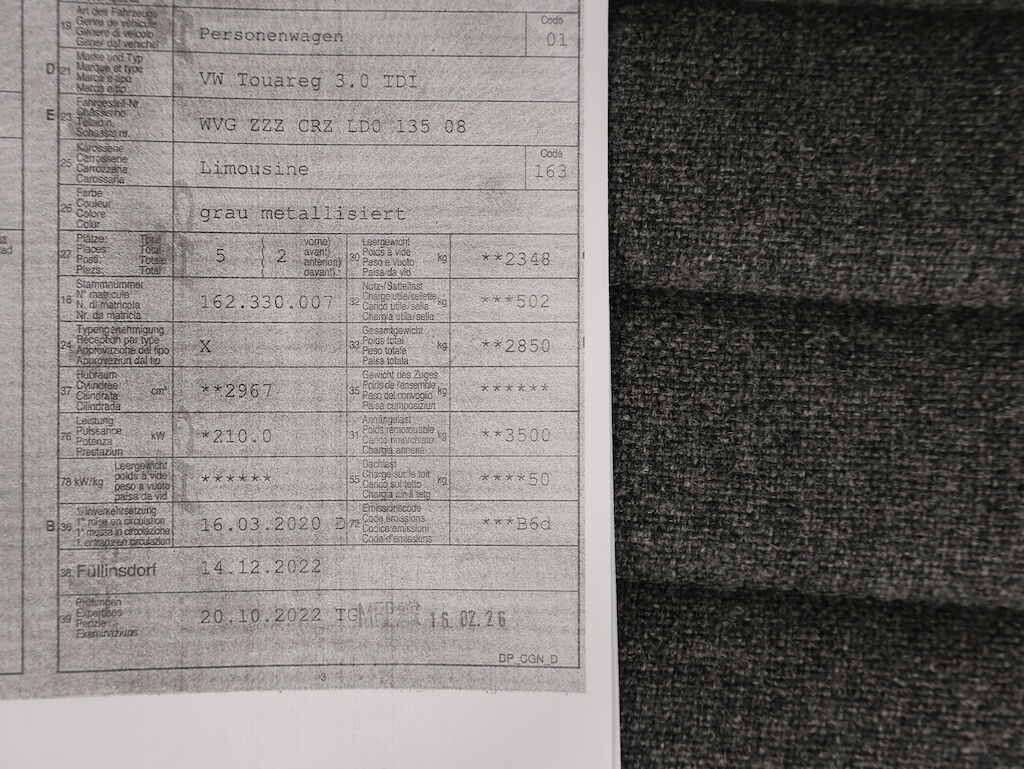 19 Art des Fahrzeugs
Genre de véhicule
Genere di veicolo
Gener dal vehichel
Personenwagen
Code
01
D 21 Marke und Typ
Marque et type
Marca e tipo
Marca e tip
VW Touareg 3.0 TDI
E 23 Fahrgestell-Nr.
Châssis no
Telaio n.
Schassis nr.
WVG ZZZ CRZ LD0 135 08
25 Karosserie
Carrosserie
Carrozzeria
Carossaria
Limousine
Code
163
26 Farbe
Couleur
Colore
Colur
grau metallisiert
27 Plätze: Total
Places: Total
Posti: Totale
Plazs: Total
5 ( 2 vorne)
avant)
anteriori)
davant)
30 Leergewicht
Poids à vide
Peso a vuoto
Paisa da vid
kg **2348
18 Stammnummer
N° matricule
N. di matricola
Nr. da matricla
162.330.007
32 Nutz-/Sattellast
Charge utile/sellette
Carico utile/sella
Chargia utila/sella
kg ***502
24 Typengenehmigung
Réception par type
Approvazione del tipo
Approvaziun dal tip
X
33 Gesamtgewicht
Poids total
Peso totale
Paisa totala
kg **2850
37 Hubraum
Cylindrée
Cilindrata
Cilindrada
cm³ **2967
35 Gewicht des Zuges
Poids de l'ensemble
Peso del convoglio
Paisa cumposiziun
kg ******
76 Leistung
Puissance
Potenza
Prestaziun
kW *210.0
31 Anhängelast
Poids remorquable
Carico rimorchiato
Chargia annexa
kg **3500
78 kW/kg Leergewicht
poids à vide
peso a vuoto
paisa da vid
******
55 Dachlast
Charge sur le toit
Carico sul tetto
Chargia sin il tetg
kg ****50
B 36 1. Inverkehrsetzung
1re mise en circulation
1a messa in circolazione
1. entrada en circulaziun
16.03.2020 D
72 Emissionscode
Code émissions
Codice emissioni
Code d'emissiuns
***B6d
38 Füllinsdorf
14.12.2022
39 Prüfungen
Expertises
Perizie
Examinaziuns
20.10.2022 TG
16. 02. 26
DP_CGN_D
3